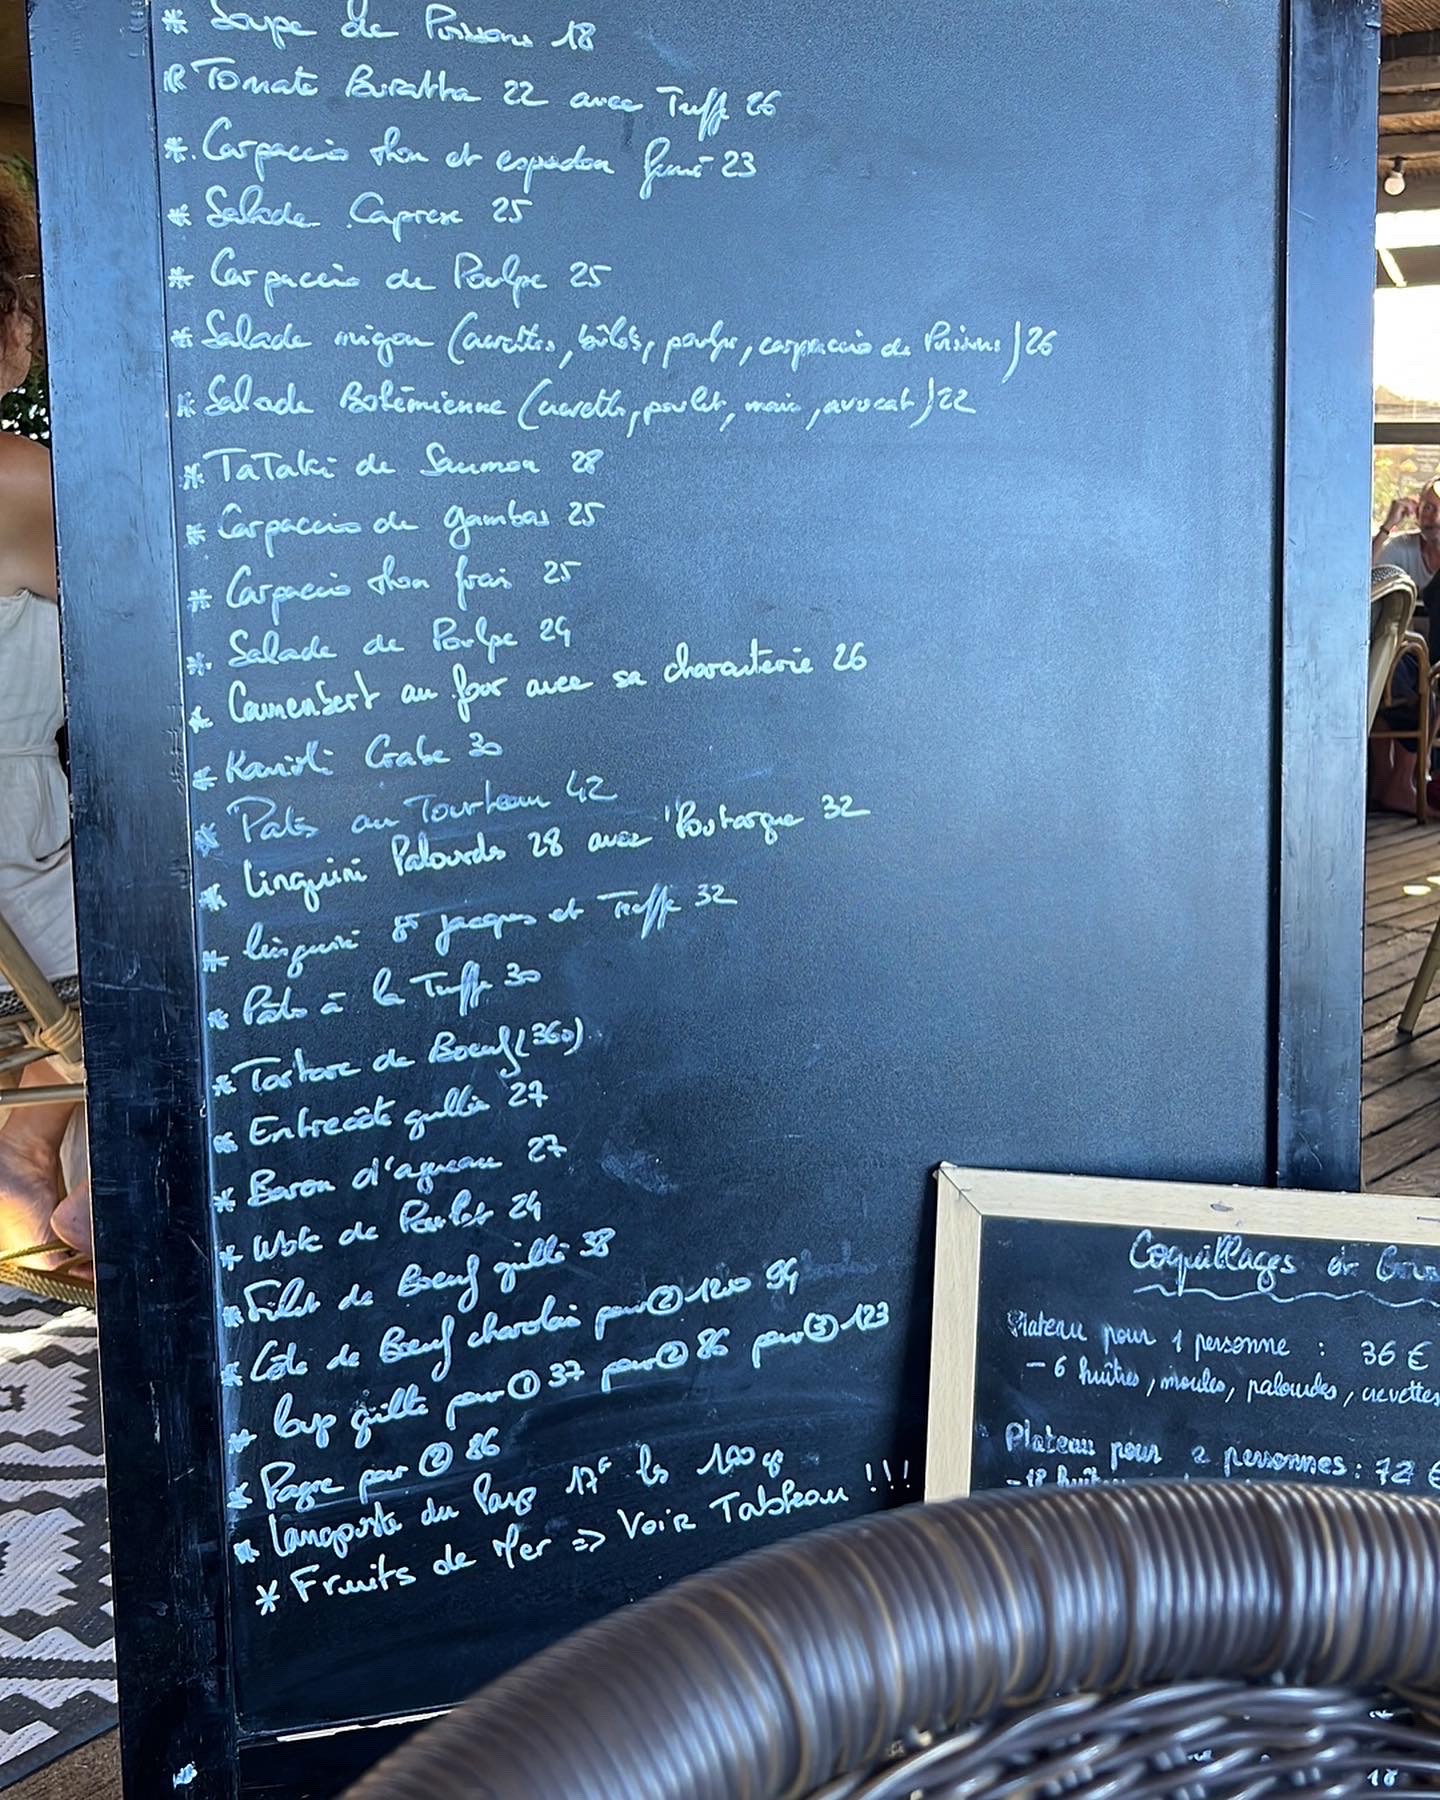 * Soupe de Poissons 18
* Tomate Buratta 22 avec Truffe 26
* Carpaccio thon et espadon fumé 23
* Salade Caprese 25
* Carpaccio de Poulpe 25
* Salade (crevettes, bulots, poulpe, carpaccio de Poissons) 26
* Salade Bohémienne (crevettes, poulet, maïs, avocat) 22
* TaTaki de Saumon 28
* Carpaccio de gambas 25
* Carpaccio thon frais 25
* Salade de Poulpe 24
* Camembert au four avec sa charcuterie 26
* Crabe 30
* Pates au Tourteau 42
* Linguini Palourdes 28 avec Poutargue 32
* linguini St jacques et Truffe 32
* Pâtes à la Truffe 30
* Tartare de Boeuf (360)
* Entrecôte grillée 27
* Baron d'agneau 27
* Wok de Poulet 24
* Filet de Boeuf grillé 38
* Côte de Boeuf charolais pour ② 1200 94
* loup grillé pour ① 37 pour ② 86 pour ③ 123
* Pagre pour ② 86
* Langouste du 17€ les 100 gr
* Fruits de Mer => Voir Tableau !!!
Coquillages
Plateau pour 1 personne : 36 €
- 6 huîtres, moules, palourdes, crevettes
Plateau pour 2 personnes : 72 €
18